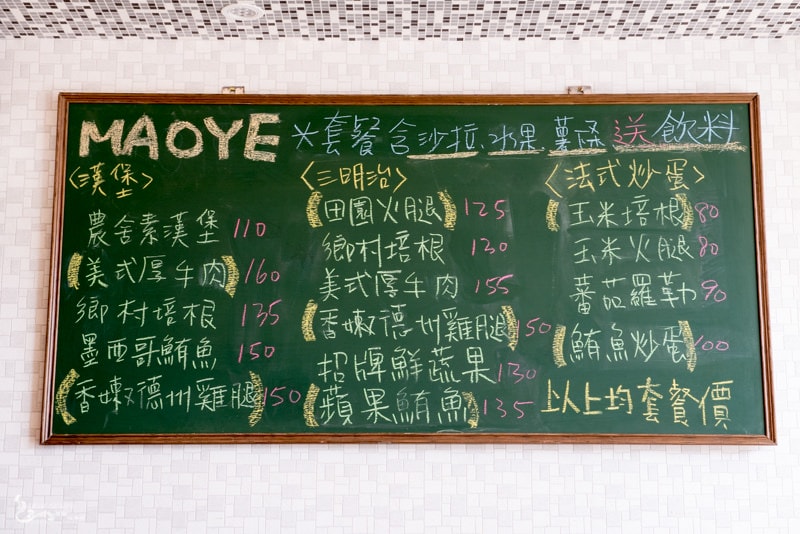 MAOYE *套餐含沙拉.水果.薯條送飲料
<漢堡>
農舍素漢堡 110
(美式厚牛肉) 160
鄉村培根 135
墨西哥鮪魚 150
(香嫩德州雞腿) 150
<三明治>
(田園火腿) 125
鄉村培根 130
美式厚牛肉 155
(香嫩德州雞腿) 150
招牌鮮蔬果 130
(蘋果鮪魚) 135
<法式炒蛋>
(玉米培根) 80
玉米火腿 80
蕃茄羅勒 90
(鮪魚炒蛋) 100
以上均套餐價